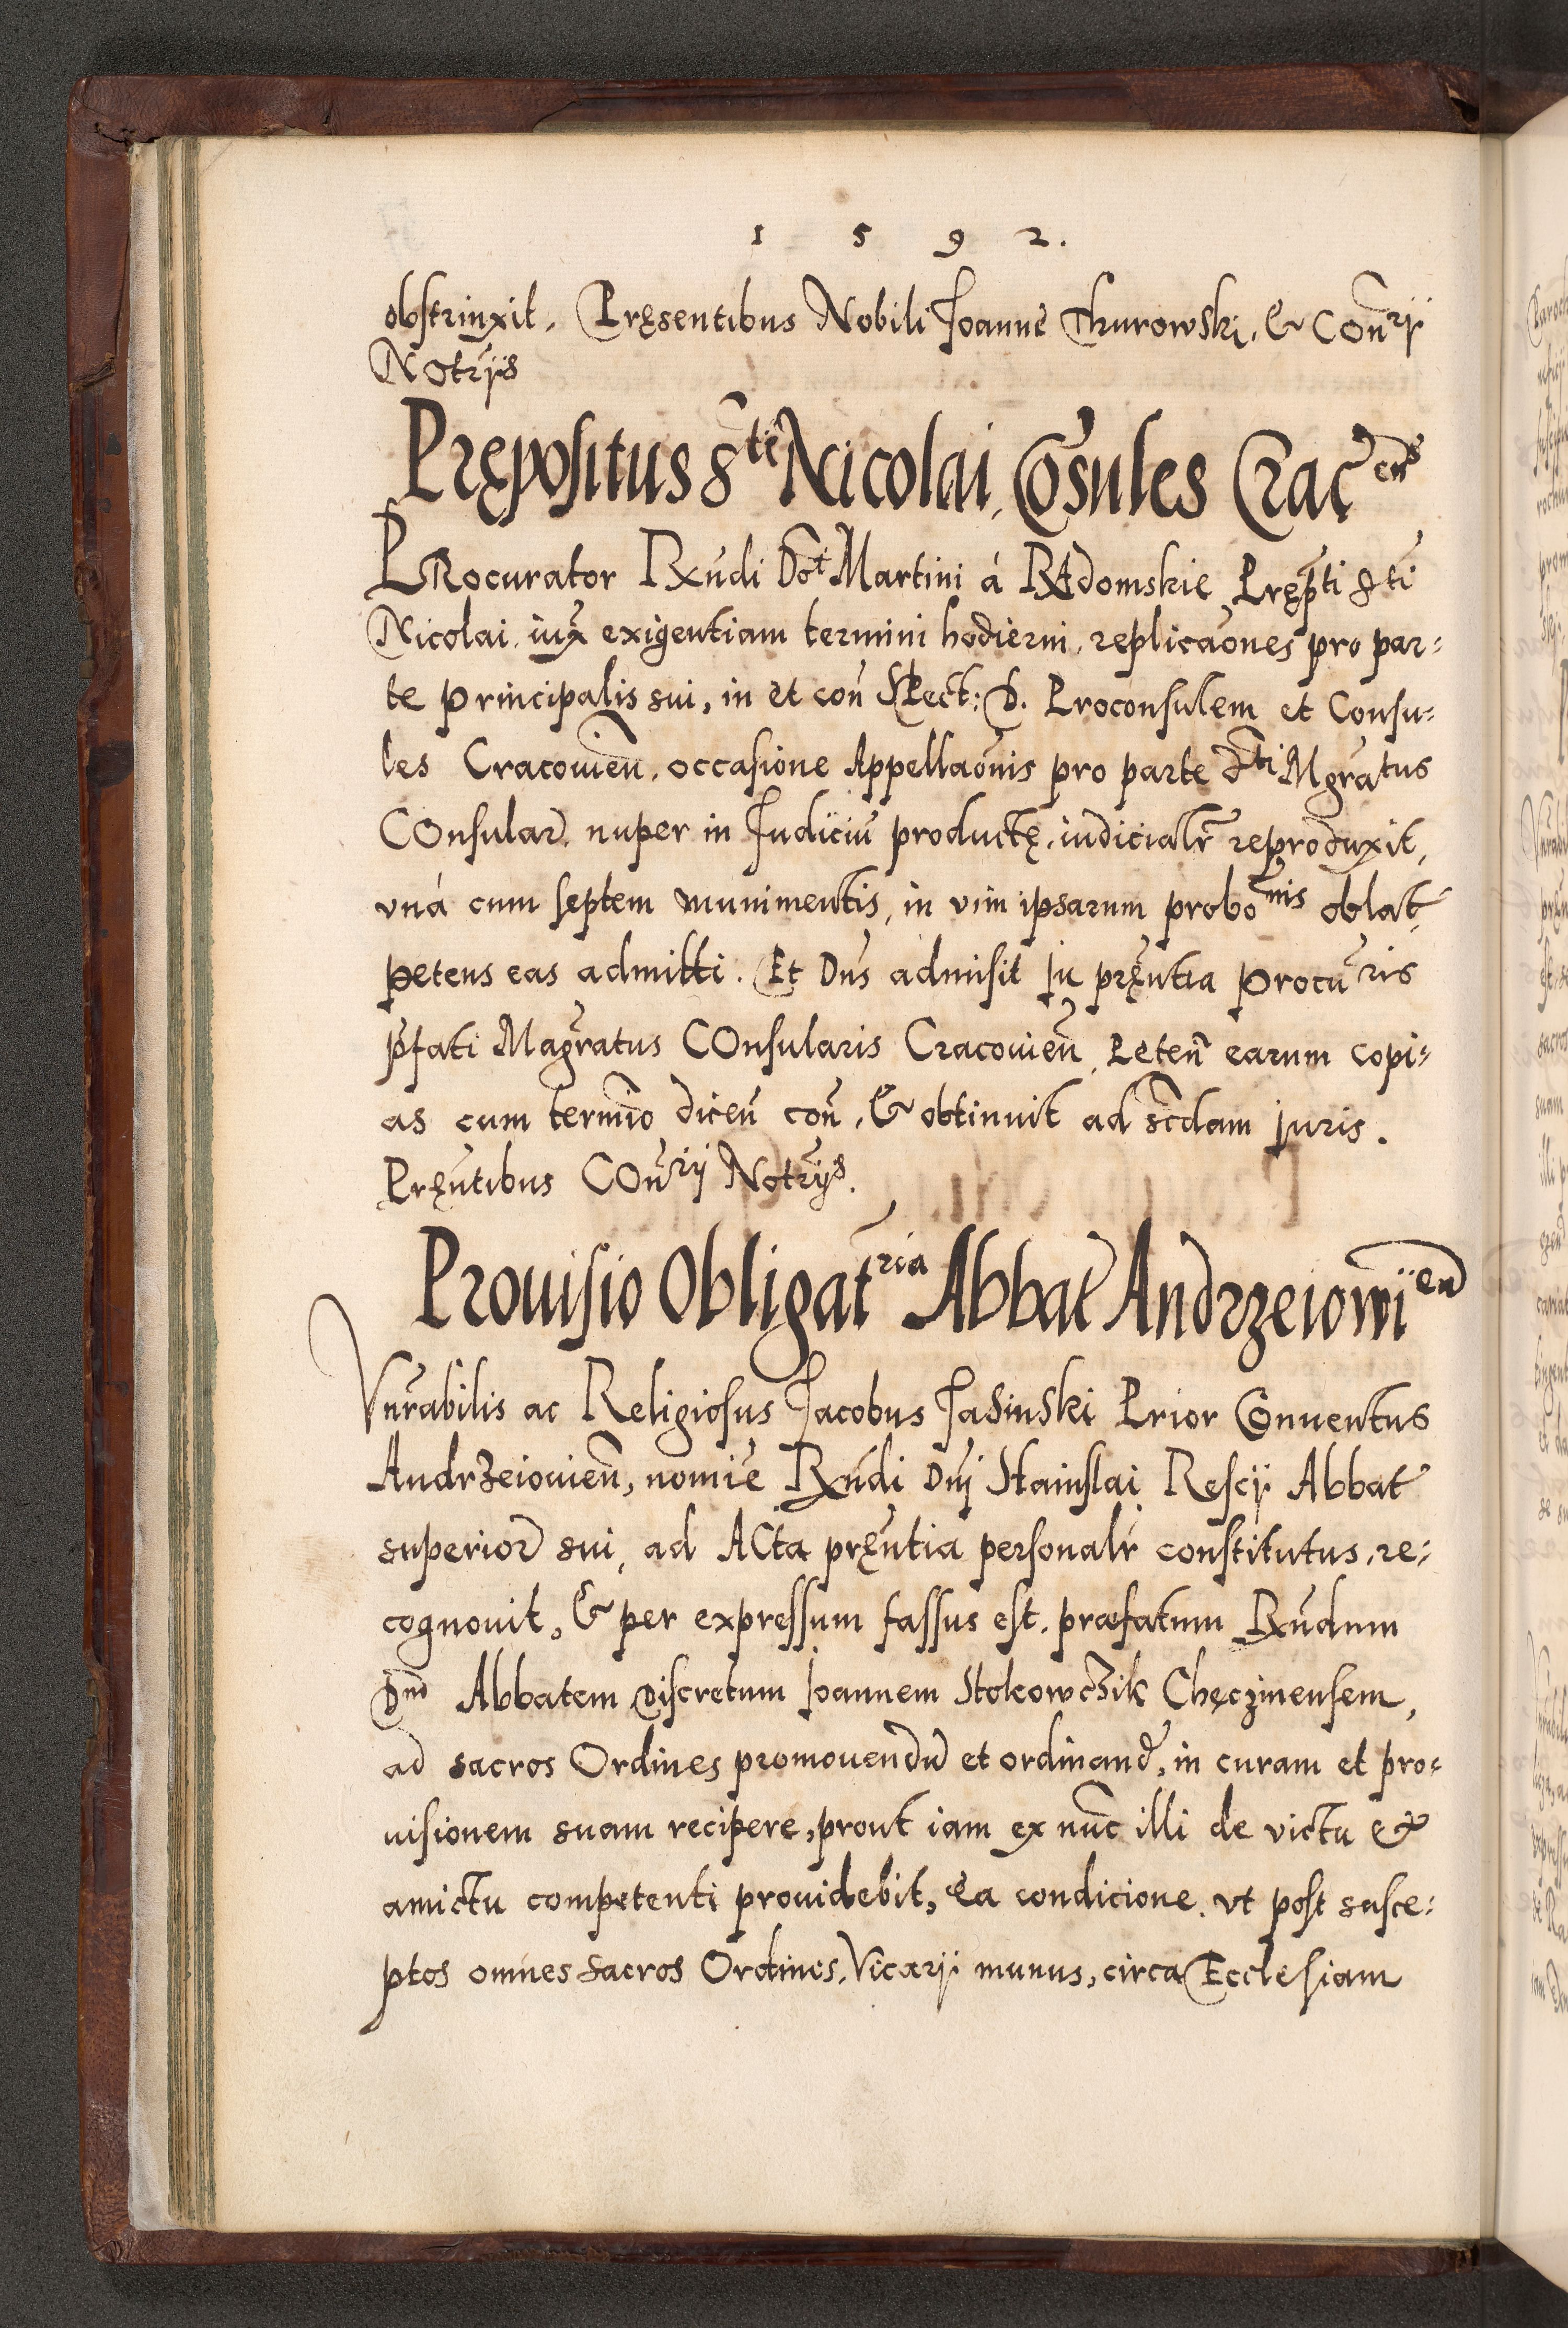 1 5 9 2.
obstrinxit. Pręsentibus Nobili Joanne Thurowski, & Coñrij
Notrijs
Pręposıtus S̃ti Nicolai, Cõsules Cracens
PRocurator Rxńdi Dõt Martini á Radomskie Pręp̃ti S̃ti
Nicolai, iux̃ exigentiam termini hodierni, replicãones pro par⸗
te principalis sui, in et coñ SPect: D. Proconsulem et Consu⸗
les Cracouieñ, occasione Appellãonis pro parte d̃ti Mgrãtus
COnsular̃, nuper in Judiciũ productę, iudicialr̃ reproduxit,
vná cum septem munimentis, in vim ipsarum probõnis oblat̃,
petens eas admitti. Et Dñs admisit In pręñtia Procũris
p̃fati Magr̃atus COnsularis Cracouieñ, Peteñ earum copi⸗
as cum termĩo diceñ coñ, & obtinuit ad sc̃dam Juris.
Pręñtibus COñrij Notrijs.
Prouisio Obligat̃ria Abbat̃ Andrzeiowien̄
Vnr̃abilis ac Religiosus Jacobus Jasinski Prior Conuentus
Andrzeiouieñ, nomĩe Rxńdi Dñi Stainslai Rescij Abbat̃
superior̃ sui, ad ACta pręñtia personalr̃ constitutus, re⸗
cognouit, & per expressum fassus est, præfatum Rxńdum
Dnũ Abbatem Discretum Joannem Stokowczik Chęczinensem,
ad sacros Ordines promouendũ et ordinand̃, in curam et pro⸗
uisionem suam recipere, prout iam ex nũc illi de victu &
amictu competenti prouidebit, ea condicione, vt post susce⸗
ptos omnes sacros Ordines, Vicarij munus, circa Ecclesiam